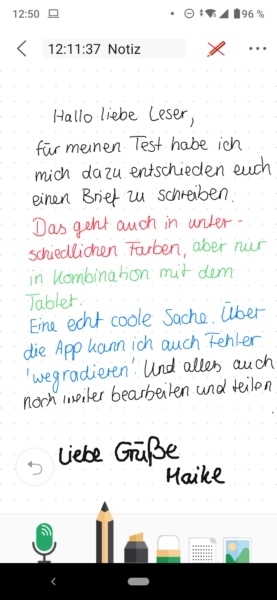 12:50
96 %
12:11:37 Notiz
Hallo liebe Leser,
für meinen Test habe ich
mich dazu entschieden euch
einen Brief zu schreiben.
Das geht auch in unter-
schiedlichen Farben, aber nur
in Kombination mit dem
Tablet.
Eine echt coole Sache. Über
die App kann ich auch Fehler
'wegradieren'. Und alles auch
noch weiter bearbeiten und teilen
Liebe Grüße
Maike